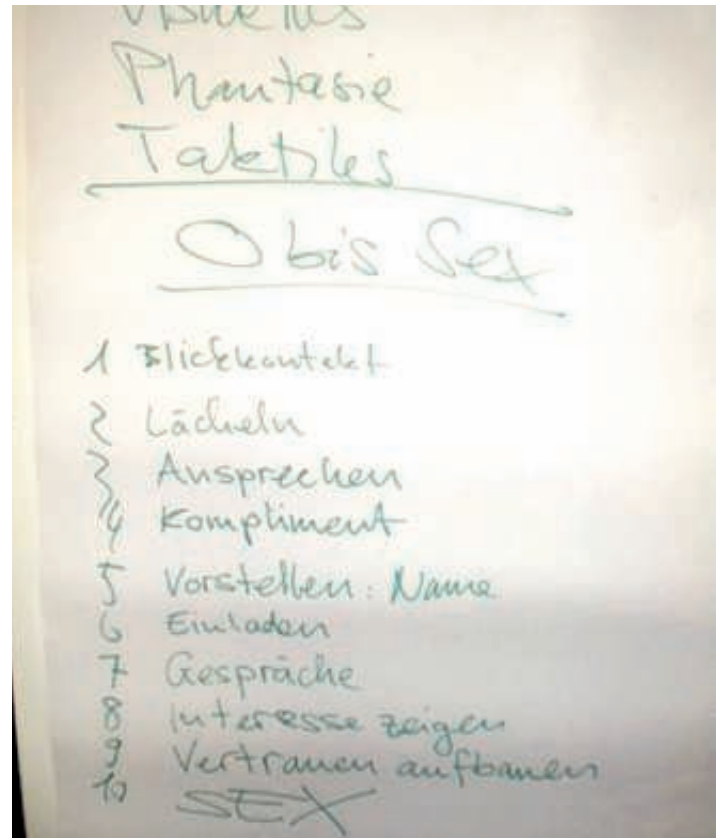 Visuelles
Phantasie
Taktiles
0 bis Sex
1 Blickkontakt
2 Lächeln
3 Ansprechen
4 Kompliment
5 Vorstellen: Name
6 Einladen
7 Gespräche
8 Interesse zeigen
9 Vertrauen aufbauen
10 SEX